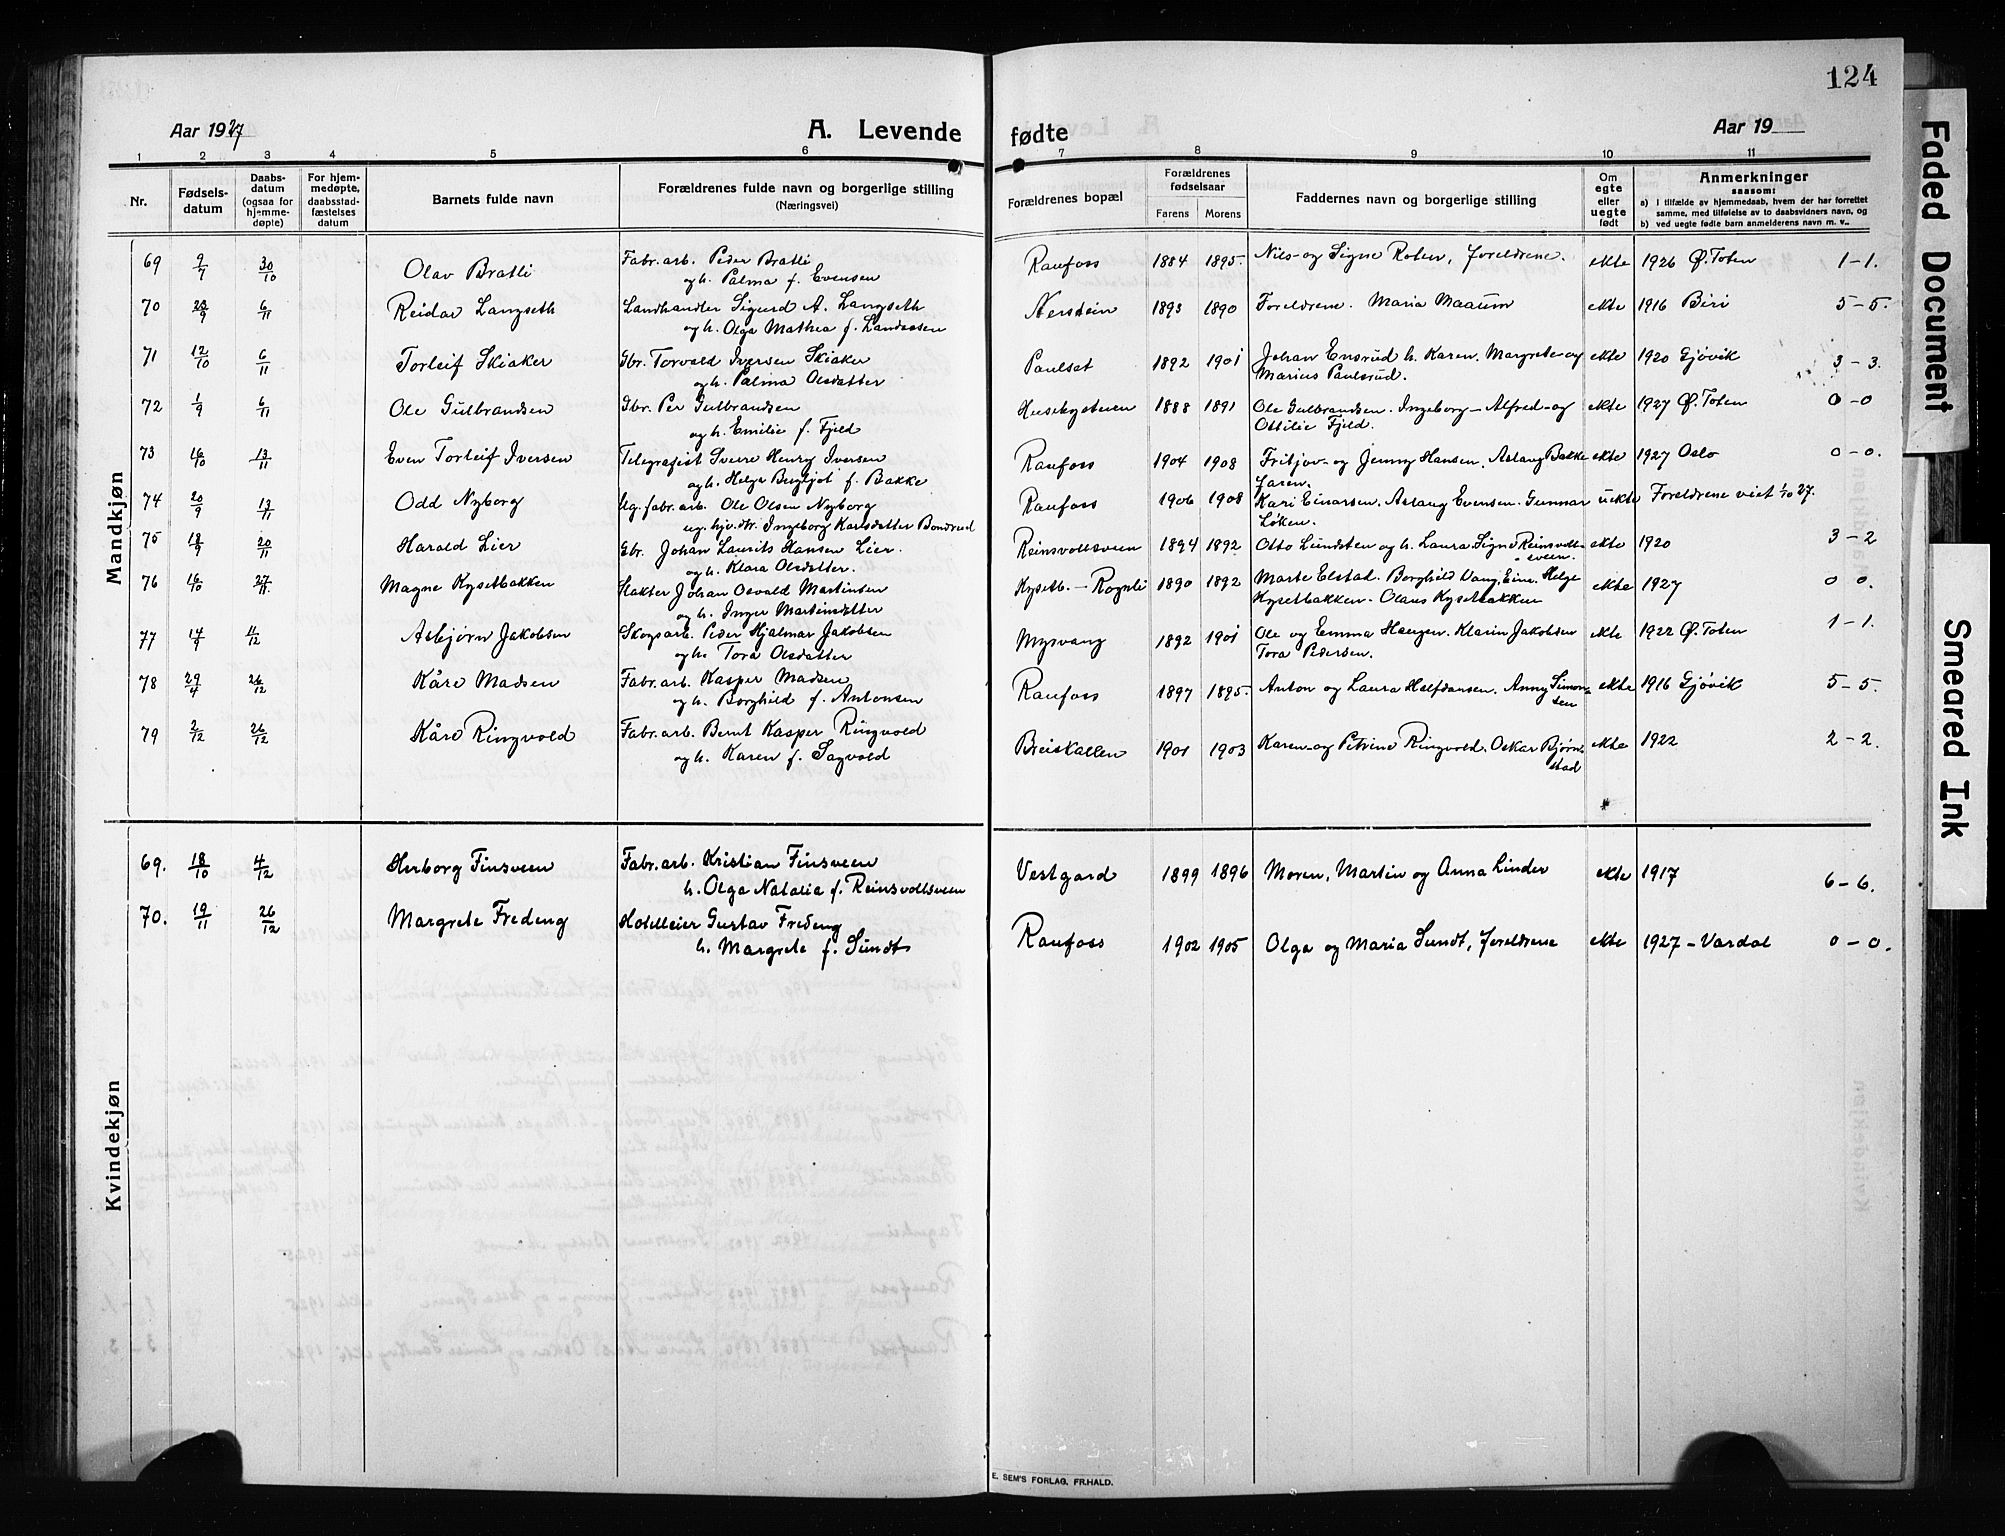 124
Aar 1927
A. Levende
fødte
Aar 19
1 2 3 4 5 6 7 8 9 10 11
Nr.
Fødsels-
datum
Daabs-
datum
(ogsaa for
hjemme-
døpte)
For hjem-
medøpte,
daabsstad-
fæstelses
datum
Barnets fulde navn
Forældrenes fulde navn og borgerlige stilling
(Næringsvei)
Forældrenes bopæl
Forældrenes
fødselsaar
Farens Morens
Faddernes navn og borgerlige stilling
Om
egte
eller
uegte
født
Anmerkninger
saasom:
a) I tilfælde av hjemmedaab, hvem der har forrettet
samme, med tilføielse av to daabsvidners navn, og
b) ved uegte fødte barn anmelderens navn m. v..
Mandkjøn
69 9/7 30/10 Olav Bratli Fabr. arb. Peder Bratli Raufoss 1884 1895. Nils- og Signe Roten, foreldrene. ekte 1926 Ø. Toten 1-1.
og h. Palma f. Evensen
70 6/11 Reidar Langseth Landhandler Sigurd A. Langseth 1893 1890 Foreldrene. Maria Maaum ekte 1916 Biri 5-5.
og h. Olga Mathea f. Landaasen
71 12/10 6/11 Torleif Skiaker Gbr. Torvald Iversen Skiaker Paulset 1892 1901 Johan Ensrud h. Karen. Margrete- og ekte 1920 Gjøvik 3-3.
og h. Palma Olsdatter Marius Paulsrud.
72 1/9 6/11 Ole Gulbrandsen Gbr. Per Gulbrandsen 1888 1891 Ole Gulbrandsen. Ingeborg- Alfred- og ekte 1927 Ø. Toten 0-0
og h. Emilie f. Fjeld Ottilie Fjeld.
73 16/10 13/11 Even Torleif Iversen Telegrafist Sverre Henry Iversen Raufoss 1904 1908 Fritjov- og Jenny Hansen. Aslaug Bakke ekte 1927 Oslo 0-0.
og h. Helga Bergljot f. Bakke faren.
74 20/9 13/11 Odd Nyborg Ug. fabr. arb. Ole Olsen Nyborg Raufoss 1906 1908 Kari Einarsen. Aslaug Evensen. Gunnar uekte Foreldrene viet 1/10 27.
ug. hjv. dtr. Ingeborg Karlsdatter Bondrud Løken.
75 18/9 20/11 Harald Lier Gbr. Johan Laurits Hansen Lier. Reinsvollsveen 1894 1892 Otto Lundsten og h. Laura. Signe Reinsvoll- ekte 1920 3-2
og h. Klara Olsdatter. sveen.
76 16/10 27/11. Magne Kysetbakken Hakter Johan Osvald Martinsen Kysetb. - Rognli 1890 1892 Marte Elstad. Borghild Vang, Einar Helge ekte 1927 0 0.
og h. Inger Martinsdatter Kysetbakken. Olaus Kysetbakken
77 14/9 11/12 Asbjørn Jakobsen Skogsarb. Peder Hjalmar Jakobsen Mysvang 1892 1901 Ole og Emma Haugen. Klarin Jakobsen ekte 1922 Ø. Toten 1-1.
og h. Tora Olsdatter Tora Pedersen.
78 29/4 26/12 Kåre Madsen Fabr. arb. Kasper Madsen Raufoss 1897 1895. Anton og Laura Halfdansen. Anny Simon- ekte 1916 Gjøvik 5-5.
og h. Borghild f. Antonsen sen
79 2/12 26/12 Kåre Ringvold Fabr. arb. Bernt Kasper Ringvold Breiskallen 1901 1903 Karen- og Petrine Ringvold. Oskar Bjørn- ekte 1922 2-2.
og h. Karen f. Sagvold stad
Kvindekjøn
69. 18/10 4/12 Herborg Finsveen Fabr. arb. Kristian Finsveen Vestgard 1899 1896 Moren, Martin og Anna Linder ekte 1917 6-6.
h. Olga Natalia f. Reinsvollsveen
70. 19/11 26/12 Margrete Fredeng Hotelleier Gustav Fredeng Raufoss 1902 1905 Olga og Maria Sundt, foreldrene ekte 1927 - Vardal 0-0.
h. Margrete f. Sundt
E. SEM'S FORLAG, FR.HALD.
Faded Document
Smeared Ink